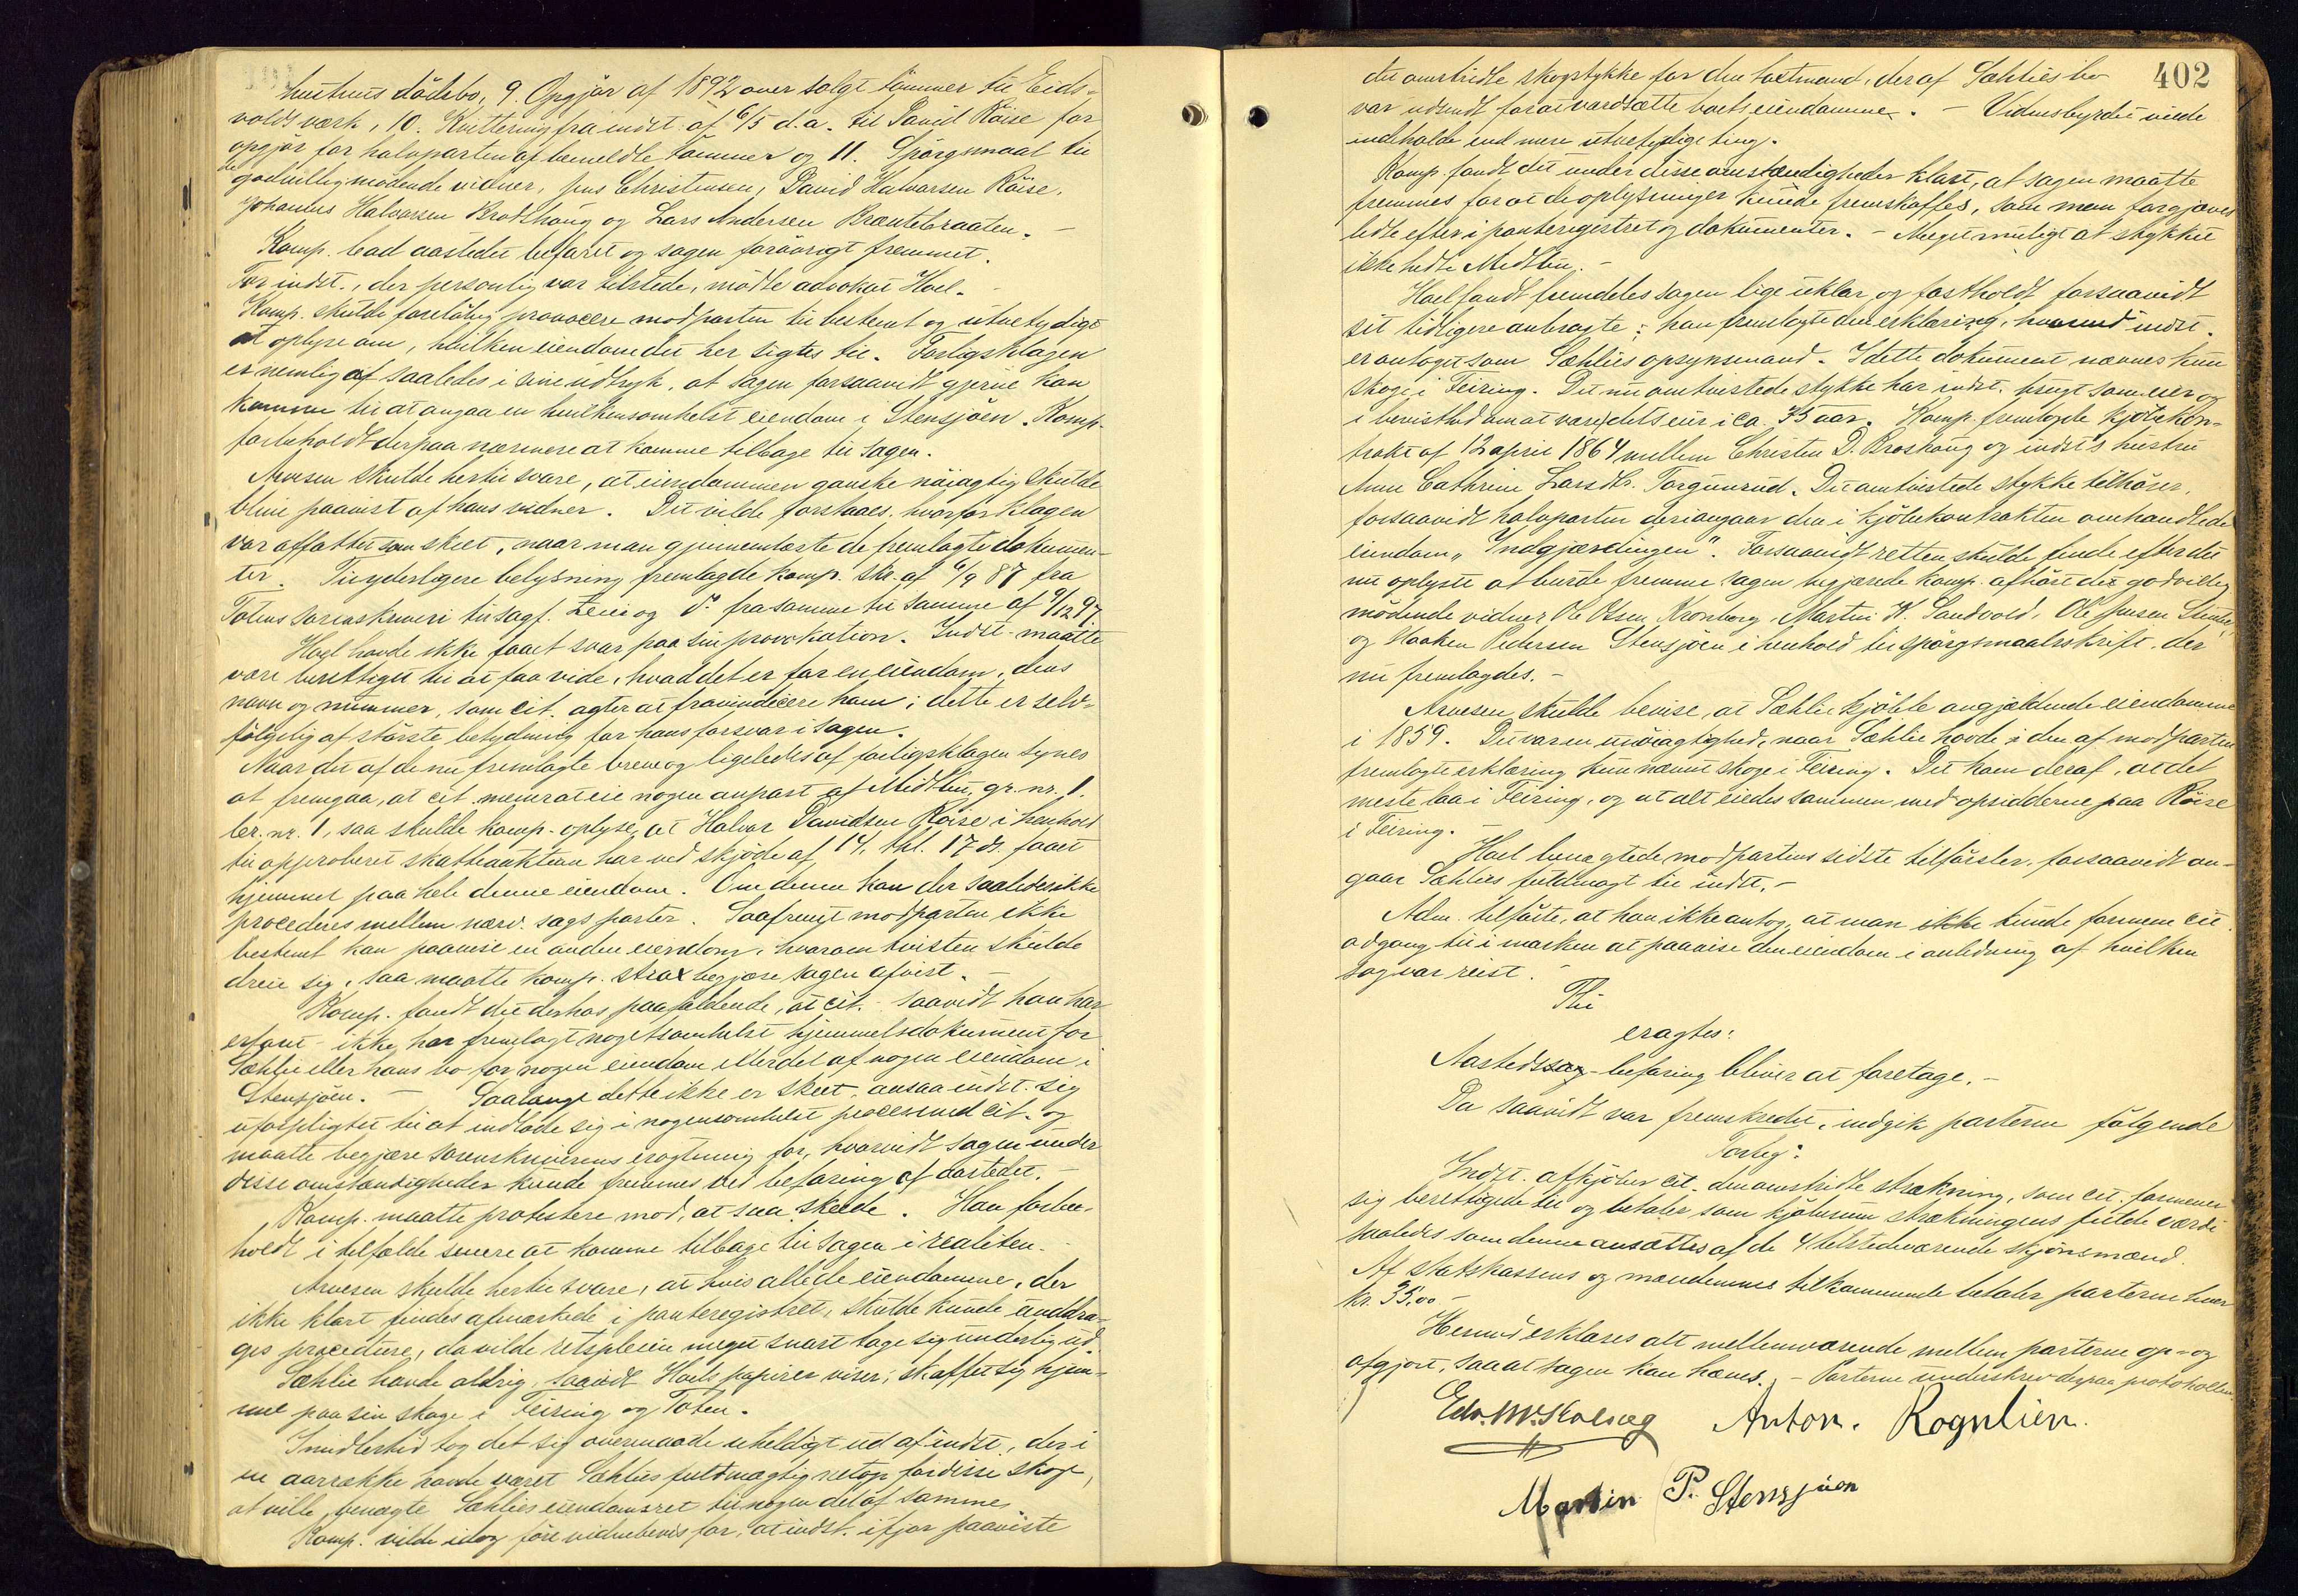 hustrus dödsbo, 9. Opgjör af 1892 over solgt tömmer til Eids-
volds værk, 10. Kvittering fra indst. af 6/5 d.a. til David Röise for
opgjör for halvparten af bemeldte tömmer og 11. Spörgsmaal til
de godvillig mödende vidner, Jens Christensen, David Halvorsen Röise,
Johannes Halvorsen Brodshaug og Lars Andersen Brænnebraaten. –
Komp. bad aastedet befaret og sagen forövrigt fremmet.
For indst., der personlig var tilstede, mödte advokat Hoel. –
Komp. skulde foreløbig provocere modparten til bestemt og utvetydigt
at oplyse om, hvilken eiendom det her sigtes til. Forligsklagen
er nemlig af saaledes i sine udtryk, at sagen forsaavidt gjerne kan
komme til at angaa en hvilkensomhelst eiendom i Stensjöen. Komp.
forbeholdt derpaa nærmere at komme tilbage til sagen.
Arnesen skulde hertil svare, at eiendommen ganske nöiagtig skulde
blive paavist af hans vidner. Det vilde forstaaes, hvorfor klagen
var affattet som skeet, naar man gjennemlæste de fremlagte dokumen-
ter. Til yderligere belysning fremlagde komp. skr. af 6/9 87 fra
Totens sorenskriveri til sagf. Leei og do. fra samme til samme af 9/12 97.
Hoel havde ikke faaet svar paa sin provokation. Indst. maatte
være berettiget til at faa vide, hvad det er for en eiendom, dens
navn og nummer, som cit. agter at fravindicere ham; dette er selv-
fölgelig af störste betydning for hans forsvar i sagen.
Naar det af de nu fremlagte breve og ligeledes af forligsklagen synes
at fremgaa, at cit. mener at eie nogen anpart af Midtlien, gr. nr. 1.
lbr. nr. 1, saa skulde komp. oplyse, at Halvor Davidsen Röise i henhold
til approberet skatteauktion har ved skjöde af 14. thl. 17 s. faaet
hjemmel paa hele denne eiendom. Om denne kan der saaledes ikke
procederes mellem nærv. sags parter. Saafremt modparten ikke
bestemt kan paavise en anden eiendom, hvorom tvisten skulde
dreie sig, saa maatte komp. strax begjære sagen afvist. –
Komp. fandt det derhos paafaldende, at cit. – saavidt han har
erfaret – ikke har fremlagt nogetsomhelst hjemmelsdokument for
Sæhlie eller hans bo for nogen eiendom eller del af nogen eiendom i
Stensjöen. – Saalænge dette ikke er skeet, ansaa indst. sig
uforpligtet til at indlade sig i nogensomhelst proces med cit. og
maatte begjære sorenskriverens eragtning for, hvorvidt sagen under
disse omstændigheder kunde fremmes ved befaring af aastedet. –
Komp. maatte protestere mod, at saa skede. Han forbe-
holdt i tilfælde senere at komme tilbage til sagen i realiteten. –
Arnesen skulde hertil svare, at hvis alle de eiendomme, der
ikke klart findes afmærkede i panteregistret, skulde kunde unddra-
ges procedure, da vilde retspleien meget snart tage sig underlig ud.
Sæhlie havde aldrig, saavidt Hoels papirer viser, skaffet sig hjem-
mel paa sin skoge i Feiring og Toten.
Imidlertid tog det sig overmaade uheldigt ud af indst., der i
en aarrække havde været Sæhlies fuldmægtig netop for disse skoge,
at ville benægte Sæhlies eiendomsret til nogen del af samme.
Komp. vilde idag före vidnebevis for, at indst. ifjor paaviste
402
det omstridte skogstykke for den taxtmand, der af Sæhlies bo
var udsendt for at værdsætte boets eiendomme. – Vidnesbyrdet vilde
indeholde end mere utvetydige ting.
Komp. fandt det under disse omstændigheder klart, at sagen maatte
fremmes for at de oplysninger kunde fremskaffes, som man forgjæves
ledte efter i panteregistret og dokumenter. – Meget muligt at stykket
ikke hedte Midtlien. –
Hoel fandt fremdeles sagen lige uklar og fastholdt forsaavidt
sit tidligere anbragte; han fremlagte den erklæring, hvormed indst.
er antaget som Sæhlies opsynsmand. I dette dokument nævnes kun
skoge i Feiring. Det nu omtvistede stykke har indst. brugt som eier og
i bevisthed om at være dets eier i ca. 35 aar. Komp. fremlagde kjöbekon-
trakt af 12 april 1864 mellem Christen D. Broshaug og indst's hustru
Anne Cathrine Larsdtr. Torgunrud. Det omtvistede stykke tilhörer,
forsaavidt halvparten deri angaar den i kjöbekontrakten omhandlede
eiendom „Indgjærdingen“. Forsaavidt retten skulde finde efter det
nu oplyste at burde fremme sagen begjærede komp. afhört det godvillig
mödende vidner Ole Olsen Kronborg, Martin K. Sandvold, Ole Jensen
og Haaken Pedersen Stensjöen i henhold til spörgsmaalsskrift, der
nu fremlagdes. –
Arnesen skulde bevise, at Sæhlie kjöbte angjældende eiendomme
i 1859. Det var en unöiagtighed, naar Sæhlie havde i den af modparten
fremlagte erklæring kun nævnt skoge i Feiring. Det kom deraf, at det
meste laa i Feiring, og at alt eiedes sammen med opsidderne paa Röise
i Feiring. –
Hoel benægtede modpartens sidste tilförsler, forsaavidt an-
gaar Sæhlies fuldmagt til indst. –
Adm. tilförte, at han ikke antog, at man ikke kunde formene cit.
adgang til i marken at paavise den eiendom i anledning af hvilken
sag var reist. –
Thi
eragtes:
Aastedssag-befaring bliver at foretage. –
Da saavidt var fremskredet, indgik parterne fölgende
Forlig:
Indst. afkjöber cit. den omstridte strækning, som cit. formener
sig berettigede til og betaler som kjöbesum strækningens fulde værdi
saaledes som denne ansættes af de 4 tilstedeværende skjönsmænd.
Af statskassens og mændennes tilkommende betaler parterne hver
kr. 35.00 –
Hermed erklæres alt mellemværende mellem parterne op- og
afgjort, saa at sagen kan hæves. – Parterne underskrev derpaa protokollen
Edv. M. Kolvig Anton. Rognlien.
Martin P. Stensjöen